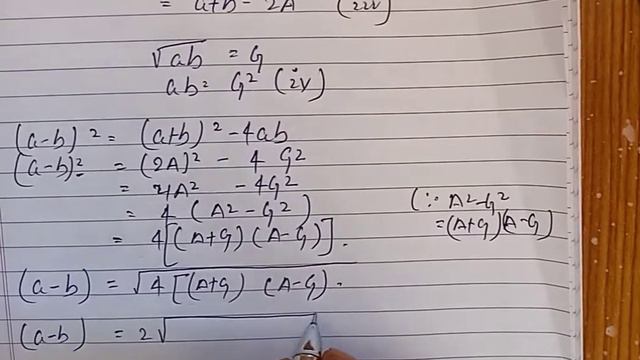 = a+b = 2A (iii)
√ab = G
ab = G² (iv)
(a-b)² = (a+b)² - 4ab
(a-b)² = (2A)² - 4 G²
= 4A² - 4G²
= 4 (A² - G²)
= 4[(A+G) (A-G)].
(∵ A² - G²
= (A+G)(A-G)
(a-b) = √4 [(A+G) (A-G).
(a-b) = 2√